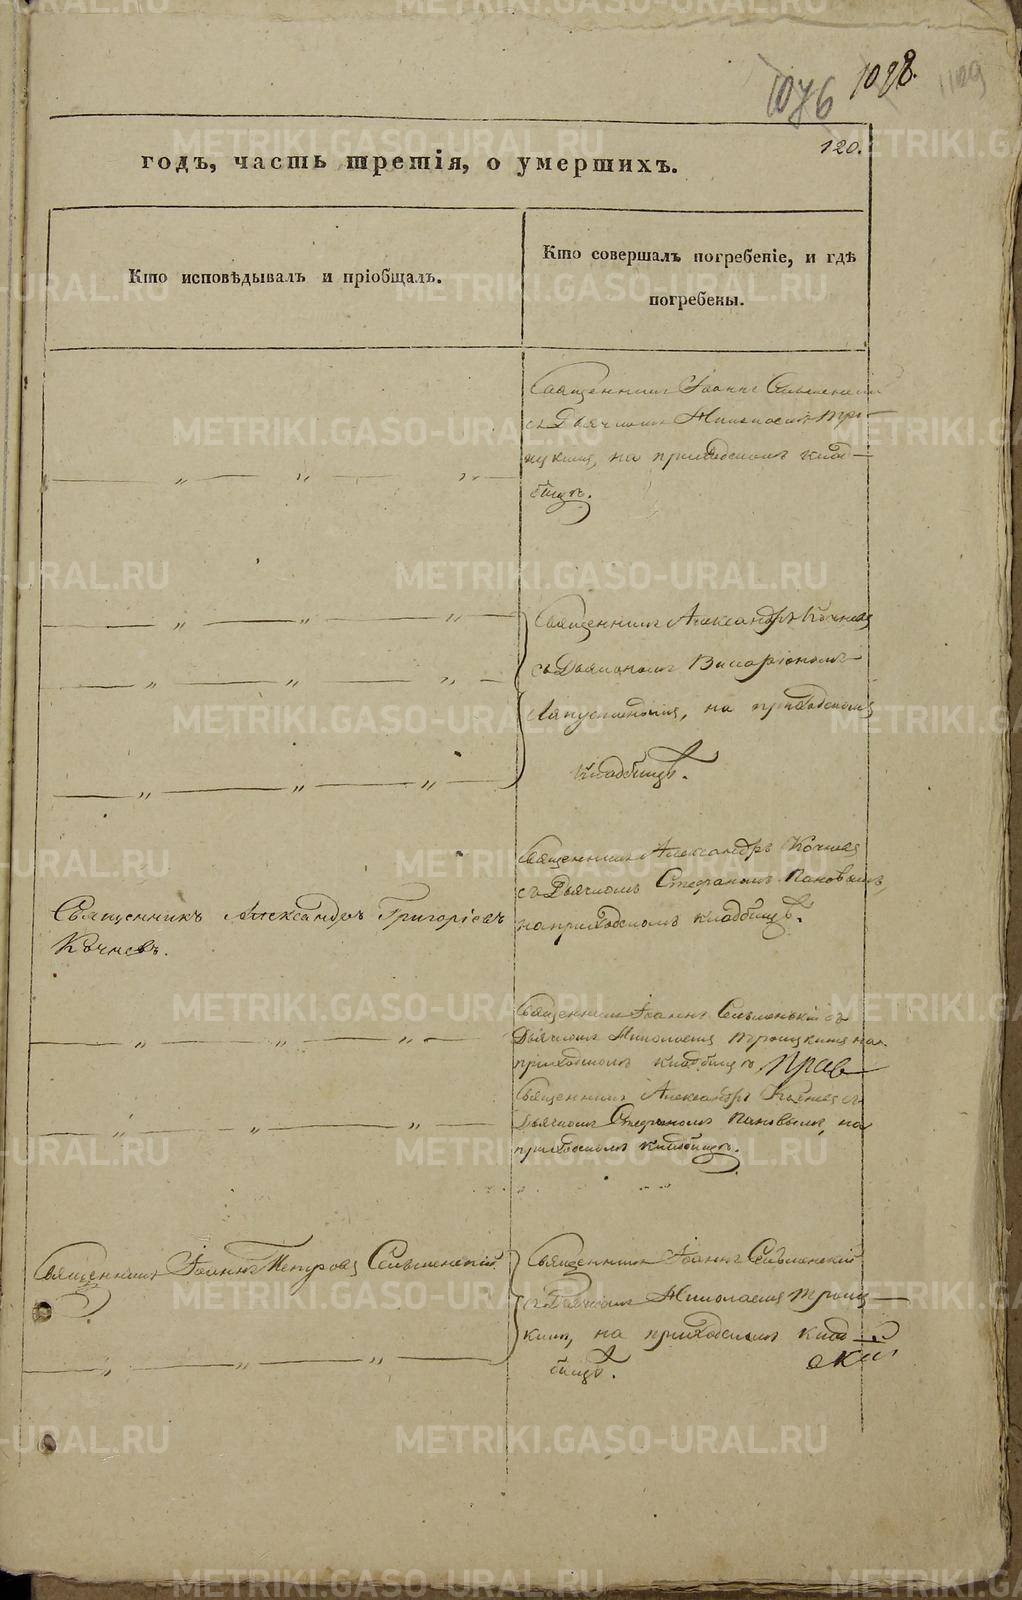 1076 1098. 1109
120.
годъ, часть третія, о умершихъ.
Кто исповѣдывалъ и пріобщалъ.
Кто совершалъ погребеніе, и гдѣ
погребены.
Священникъ Іоаннъ Сельменскій
съ Дьячкомъ Николаемъ Тро-
ицкимъ, на приходскомъ клад-
бищѣ.
Священникъ Александръ Кочневъ
съ Дьякономъ Иларіономъ
на приходскомъ
кладбищѣ.
Священникъ Александръ Григоріевъ
Кочневъ.
Священникъ Александръ Кочневъ
съ Дьячкомъ Стефаномъ Пановымъ,
на приходскомъ кладбищѣ.
Священникъ Іоаннъ Сельменскій съ
Дьячкомъ Николаемъ Троицкимъ на
приходскомъ кладбищѣ Прав
Священникъ Александръ Кочневъ съ
Дьячкомъ Стефаномъ Пановымъ, на
приходскомъ кладбищѣ.
Священникъ Іоаннъ Петровъ Сельменскій.
Священникъ Іоаннъ Сельменскій
съ Дьячкомъ Николаемъ Троиц-
кимъ, на приходскомъ клад-
бищѣ.
METRIKI.GASO-URAL.RU